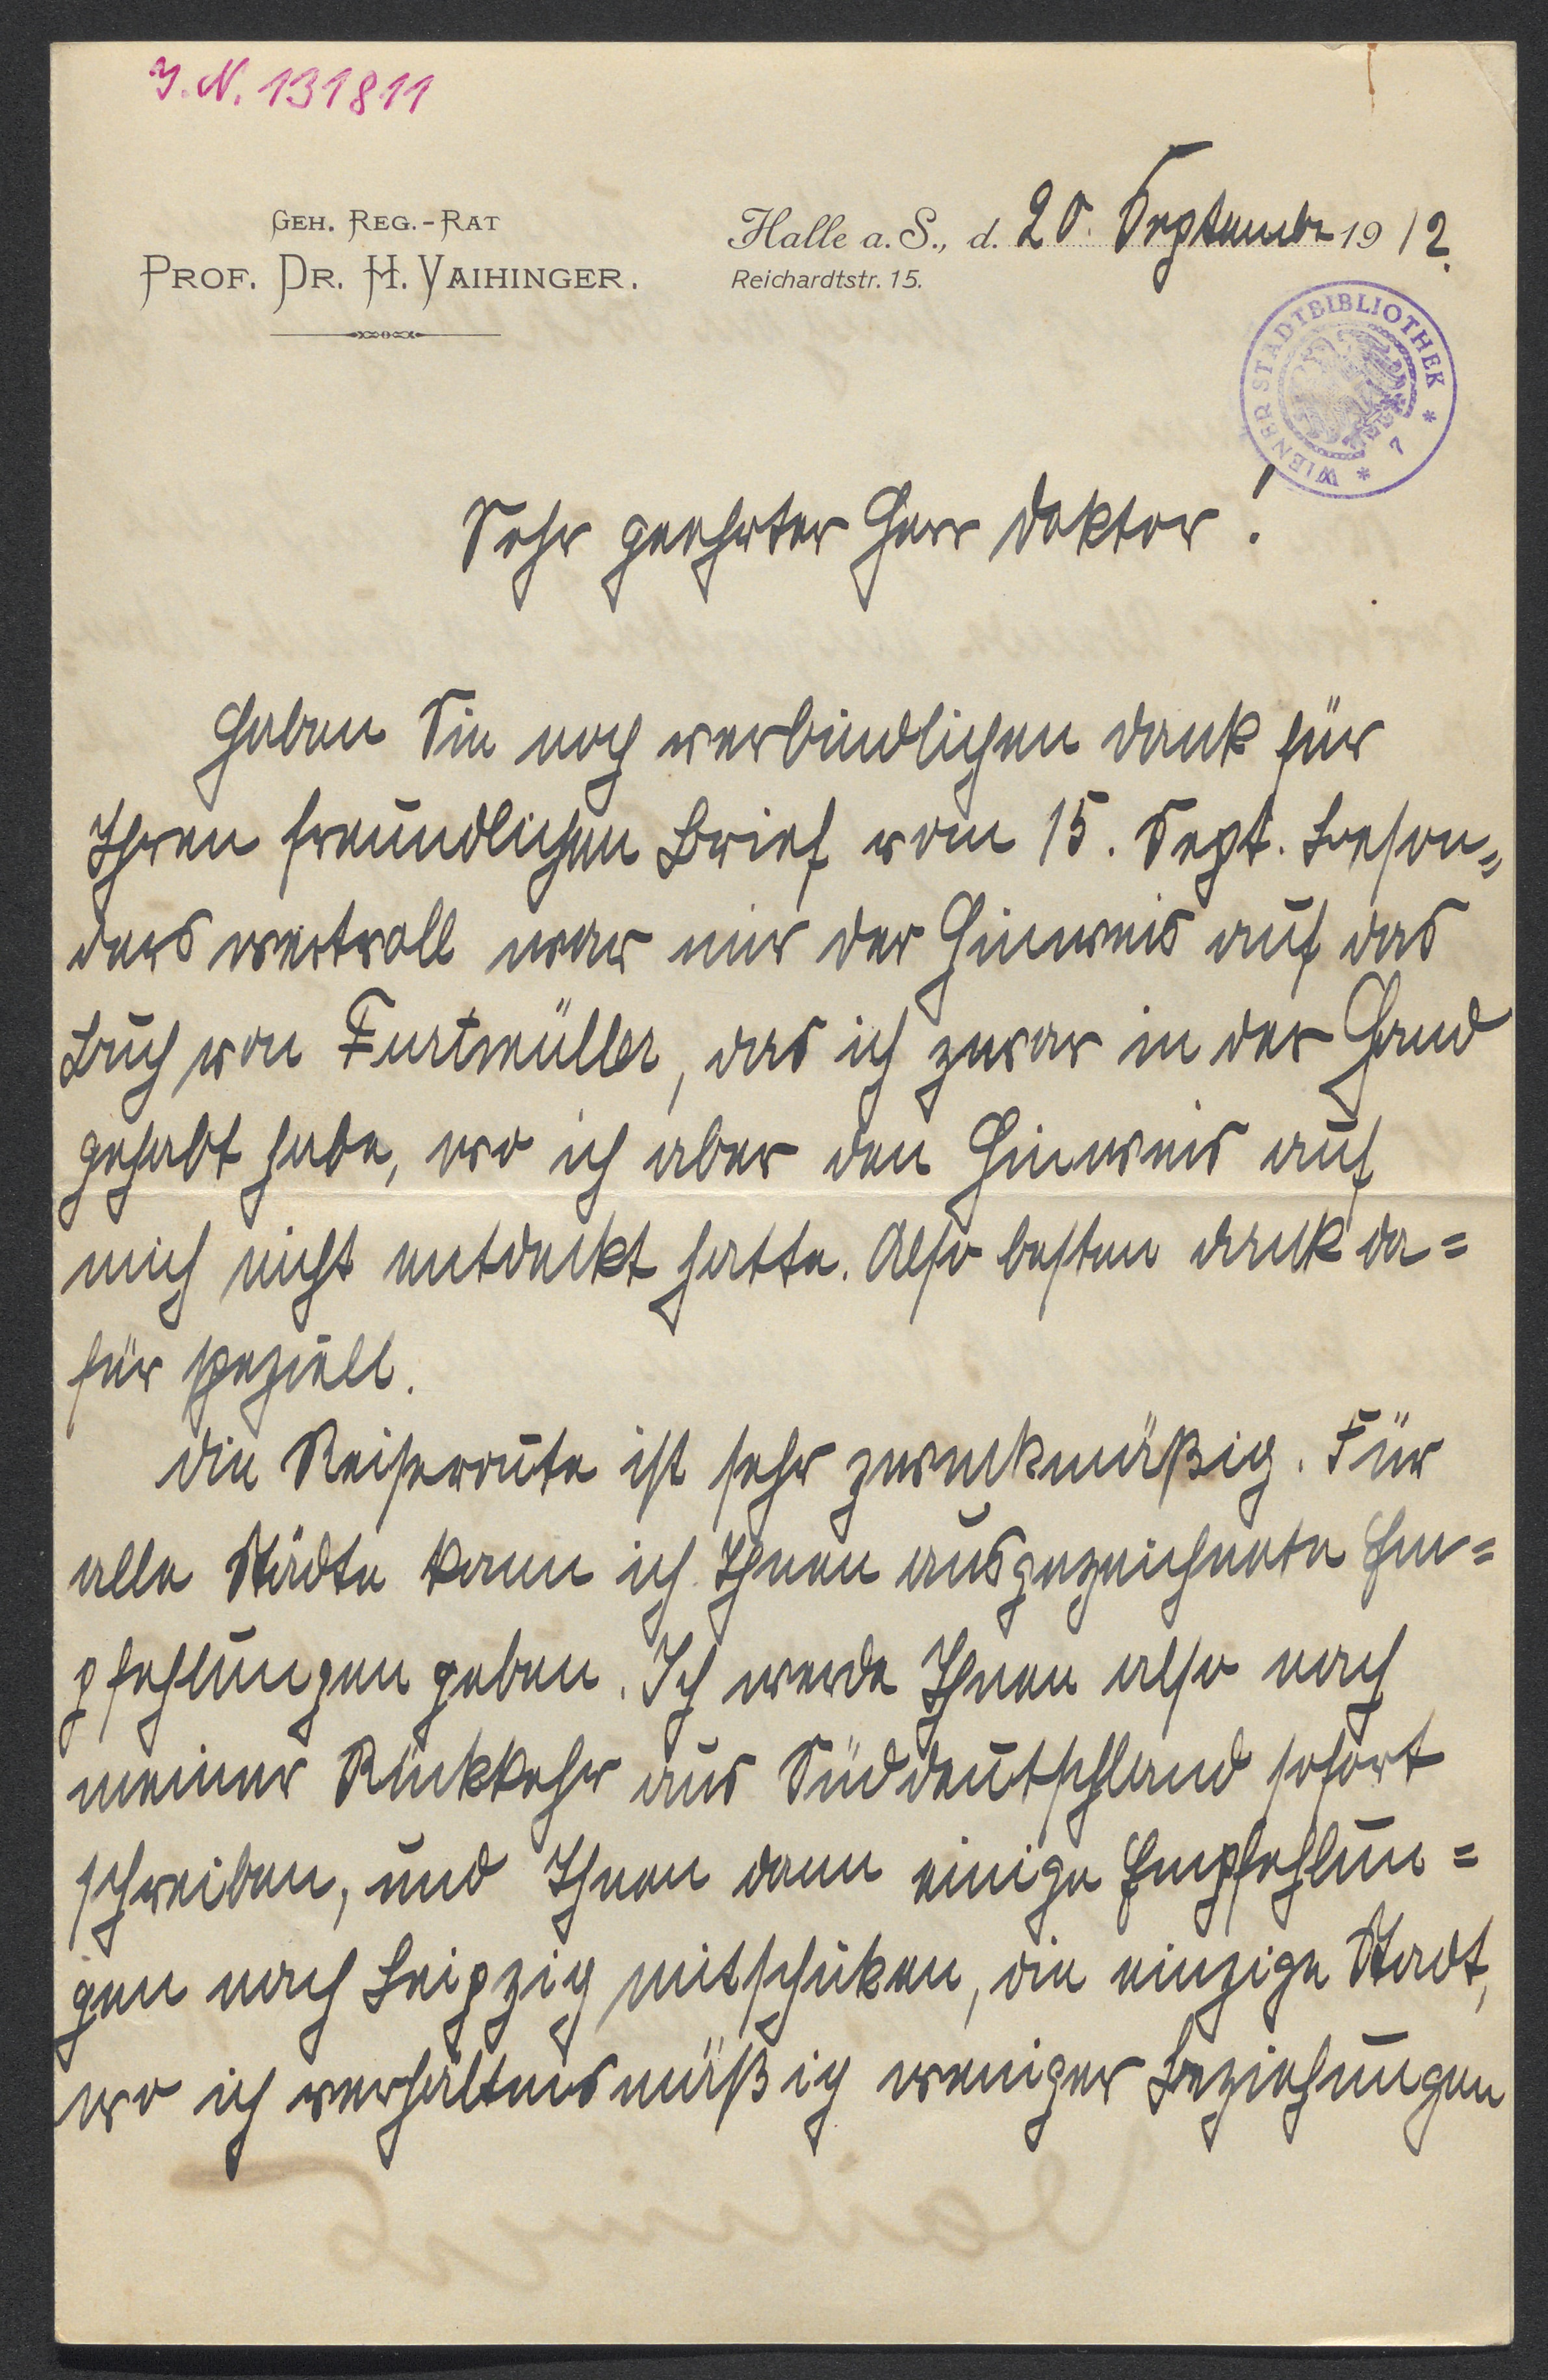 J.N. 131811
GEH. REG.-RAT
PROF. DR. H. VAIHINGER.
Halle a. S., d. 20. September 1912.
Reichardtstr. 15.
WIENER STADTBIBLIOTHEK * 7 *
Sehr geehrter Herr Doktor!
Haben Sie noch verbindlichen Dank für
Ihren freundlichen Brief vom 15. Sept. Beson=
ders wertvoll war mir der Hinweis auf das
Buch von Furtmüller, das ich zwar in der Hand
gehabt habe, wo ich aber den Hinweis auf
mich nicht entdeckt hatte. Also besten Dank da=
für speziell.
Die Reiseroute ist sehr zweckmäßig. Für
alle Städte kann ich Ihnen ausgezeichnete Em=
pfehlungen geben. Ich werde Ihnen also nach
meiner Rückkehr aus Süddeutschland sofort
schreiben, und Ihnen dann einige Empfehlun=
gen nach Leipzig mitschicken, die einzige Stadt,
wo ich verhältnismäßig weniger Beziehungen